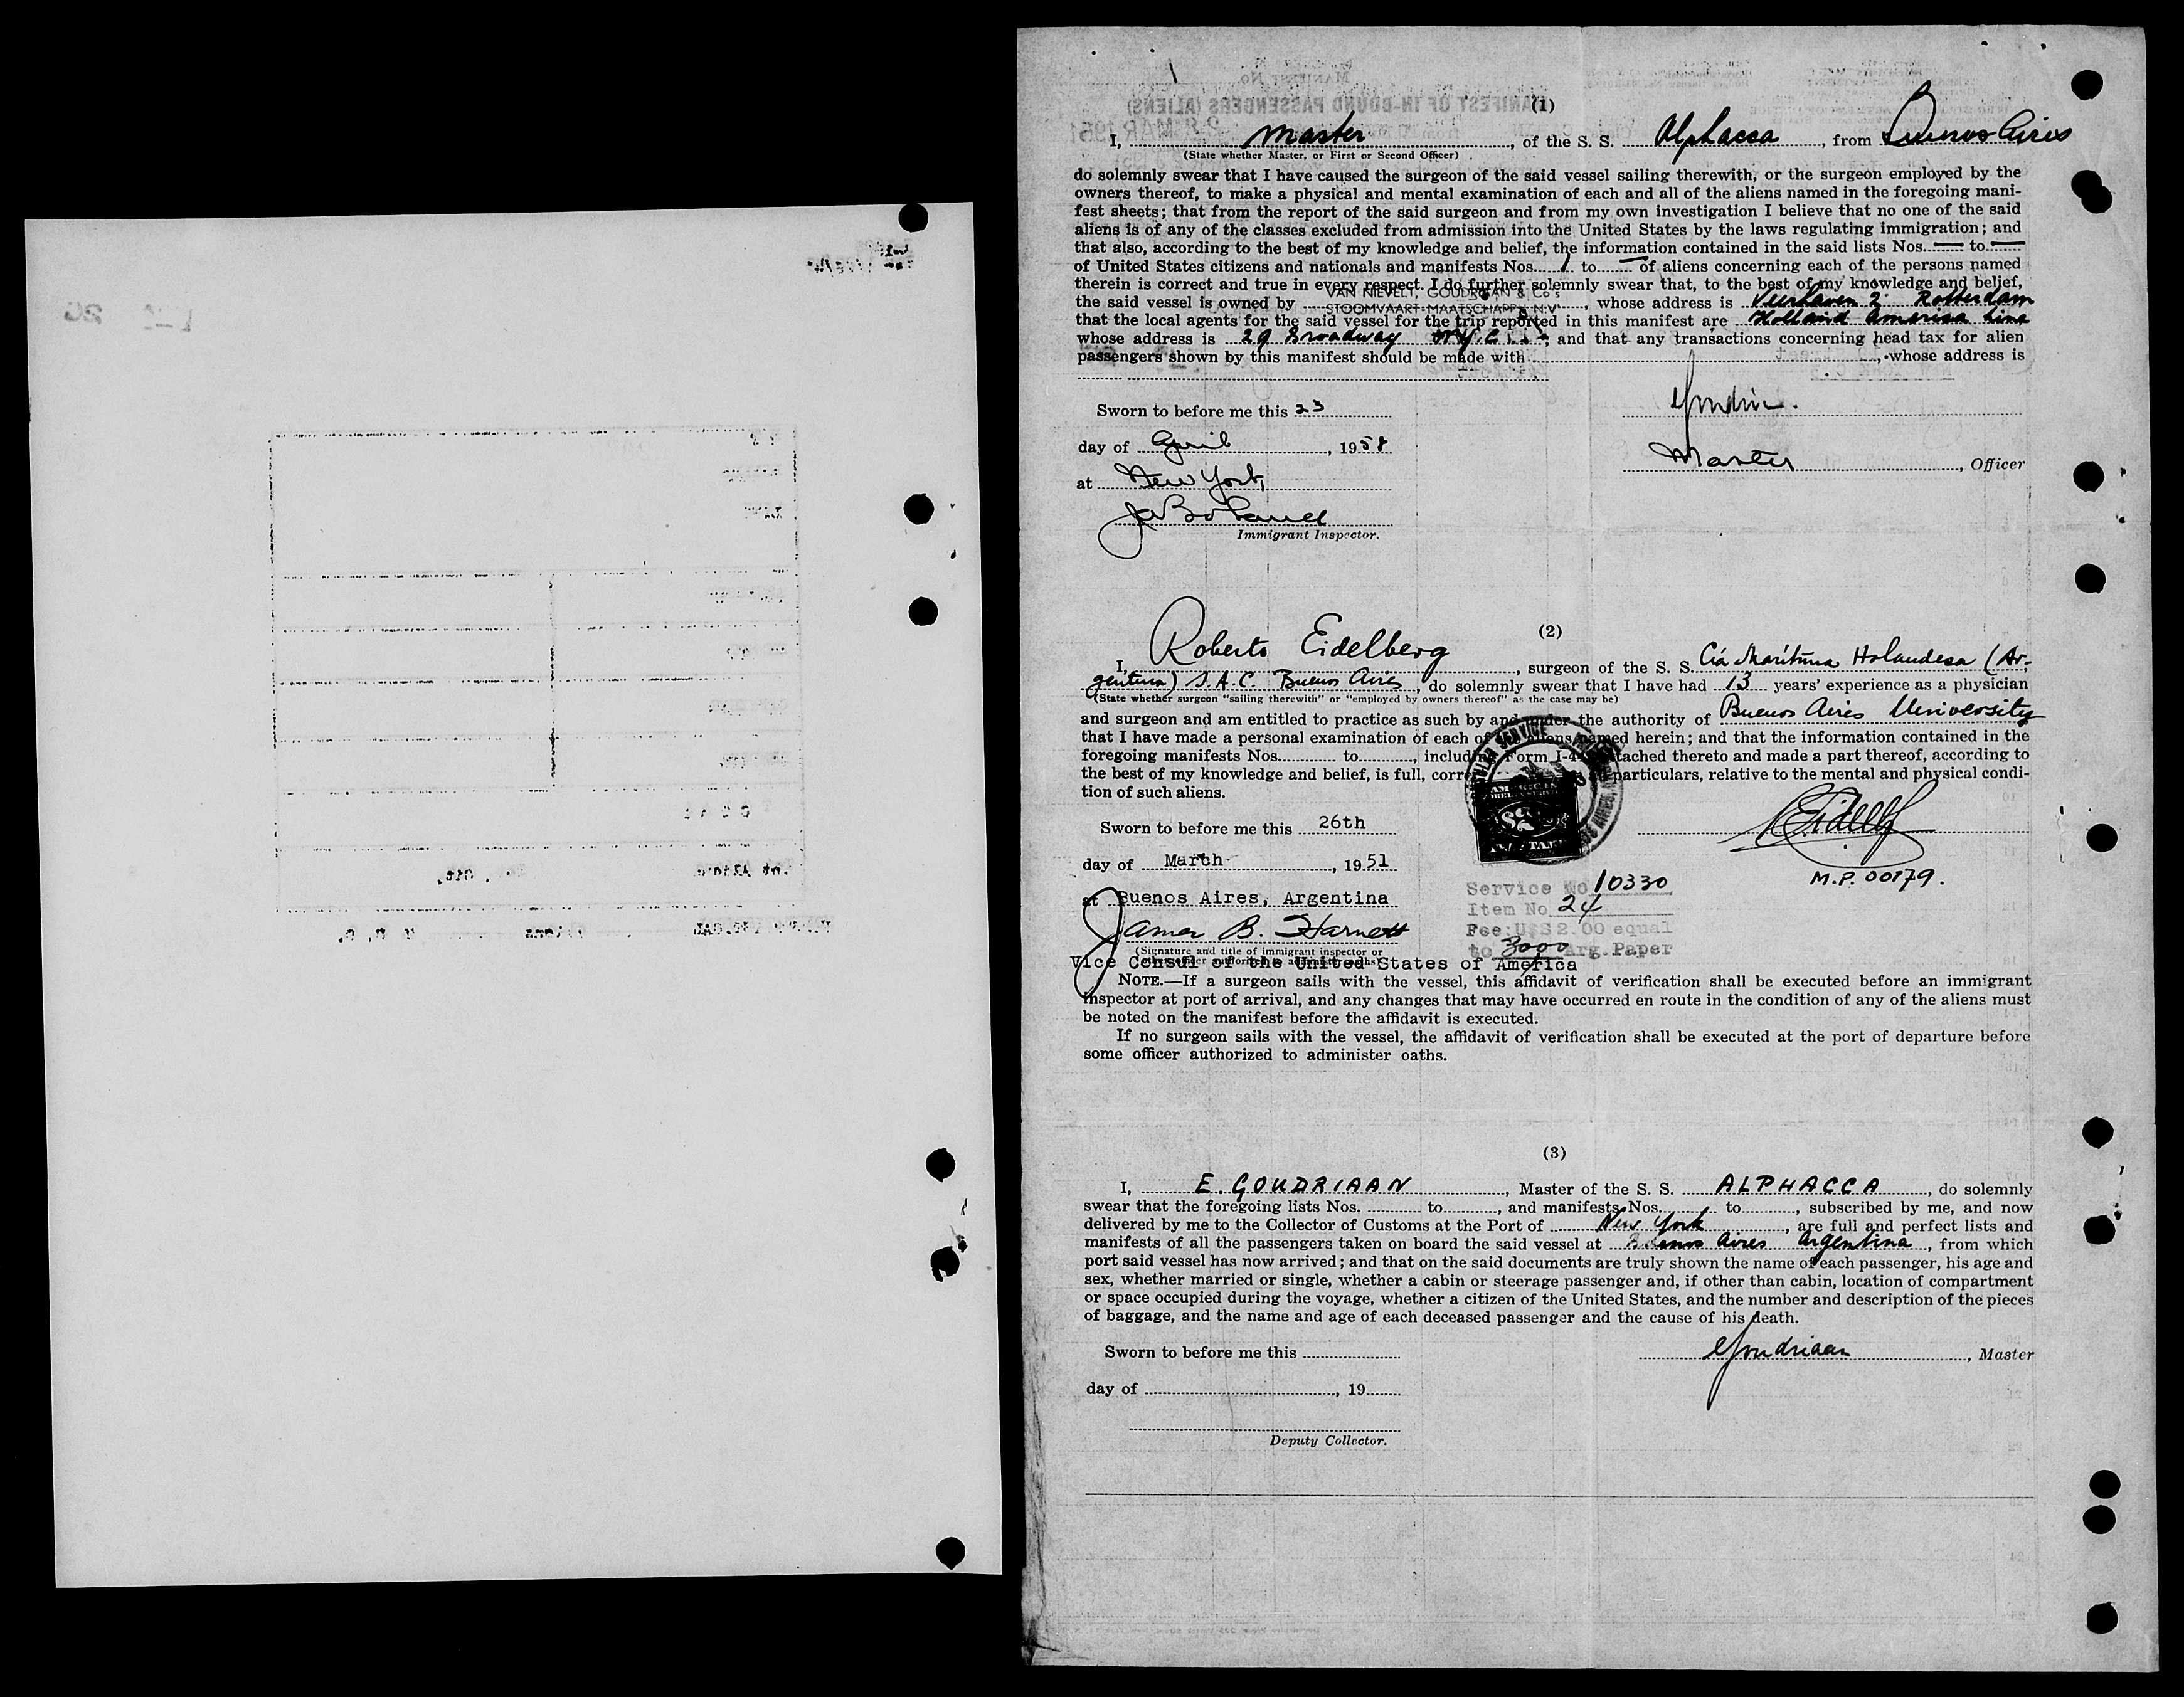 (1)
I, Master, of the S. S. Alphacca, from Buenos Aires
(State whether Master, or First or Second Officer)
do solemnly swear that I have caused the surgeon of the said vessel sailing therewith, or the surgeon employed by the
owners thereof, to make a physical and mental examination of each and all of the aliens named in the foregoing mani-
fest sheets; that from the report of the said surgeon and from my own investigation I believe that no one of the said
aliens is of any of the classes excluded from admission into the United States by the laws regulating immigration; and
that also, according to the best of my knowledge and belief, the information contained in the said lists Nos. — to —
of United States citizens and nationals and manifests Nos. 1 to — of aliens concerning each of the persons named
therein is correct and true in every respect. I do further solemnly swear that, to the best of my knowledge and belief,
VAN NIEVELT, GOUDRIAAN & Co's
the said vessel is owned by STOOMVAART-MAATSCHAPPIJ N.V., whose address is Veerhaven 2 Rotterdam
that the local agents for the said vessel for the trip reported in this manifest are Holland America Line
whose address is 29 Broadway N.Y.C., and that any transactions concerning head tax for alien
passengers shown by this manifest should be made with, whose address is
Sworn to before me this 23
day of April, 1951
Master, Officer
at New York,
Immigrant Inspector.
(2)
Roberto Eidelberg
I, surgeon of the S. S. Cía Marítima Holandesa (Ar-
gentina) S.A.C. Buenos Aires, do solemnly swear that I have had 13 years' experience as a physician
(State whether surgeon "sailing therewith" or "employed by owners thereof" as the case may be)
and surgeon and am entitled to practice as such by and under the authority of Buenos Aires University
that I have made a personal examination of each of the aliens named herein; and that the information contained in the
foregoing manifests Nos. to, including Form I-4 attached thereto and made a part thereof, according to
the best of my knowledge and belief, is full, correct particulars, relative to the mental and physical condi-
tion of such aliens.
Sworn to before me this 26th
day of March, 1951
M.P. 00179.
Service No 10330
at Buenos Aires, Argentina
Item No. 24
James B. Harnett
Fee: U S $ 2.00 equal
to 3000 Arg. Paper
(Signature and title of immigrant inspector or
other officer authorized to administer oaths)
Vice Consul of the United States of America
NOTE.—If a surgeon sails with the vessel, this affidavit of verification shall be executed before an immigrant
inspector at port of arrival, and any changes that may have occurred en route in the condition of any of the aliens must
be noted on the manifest before the affidavit is executed.
If no surgeon sails with the vessel, the affidavit of verification shall be executed at the port of departure before
some officer authorized to administer oaths.
(3)
I, E. GOUDRIAAN, Master of the S. S. ALPHACCA, do solemnly
swear that the foregoing lists Nos. to, and manifests Nos. to, subscribed by me, and now
delivered by me to the Collector of Customs at the Port of New York, are full and perfect lists and
manifests of all the passengers taken on board the said vessel at Buenos Aires Argentina, from which
port said vessel has now arrived; and that on the said documents are truly shown the name of each passenger, his age and
sex, whether married or single, whether a cabin or steerage passenger and, if other than cabin, location of compartment
or space occupied during the voyage, whether a citizen of the United States, and the number and description of the pieces
of baggage, and the name and age of each deceased passenger and the cause of his death.
Sworn to before me this
Goudriaan, Master
day of, 19
Deputy Collector.